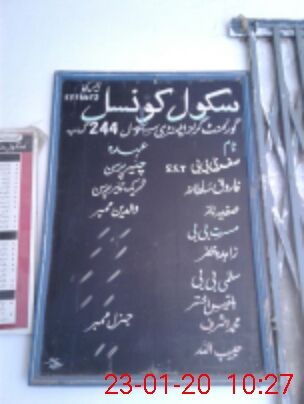 سکول کونسل
گورنمنٹ گرلز ایلیمنٹری سکول 244 گ ب
نام عہدہ
صفدی بی بی S.S.T چیئرپرسن
فاروق سلطانہ شریک چیئرپرسن
صفیہ ناز والدین ممبر
مسرت بی بی 〃 〃
زاہدہ ظفر 〃 〃
سلمیٰ بی بی 〃 〃
بلقیس اختر 〃 〃
محمد اشرف جنرل ممبر
حبیب اللہ 〃 〃
23-01-20 10:27